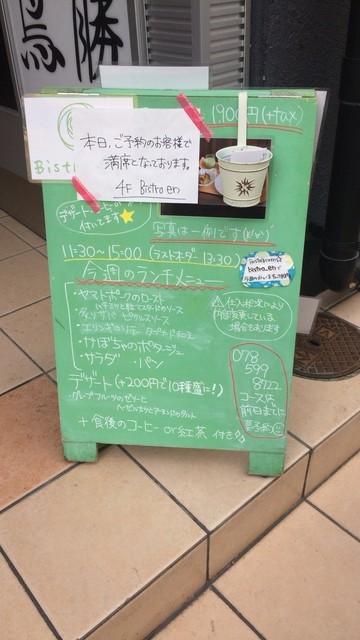 鳥勝
1900円(+tax)
本日、ご予約のお客様で
満席となっております。
4F Bistro en
Bist
デザート
付いてます
写真は一例です
11:30~15:00 (ラストオーダー 13:30)
今週のランチメニュー
・ヤマトポークのロースト
・かぼちゃのポタージュ
・サラダ ・パン
デザート (+200円で10種盛に!)
・グレープフルーツのゼリーと
+ 食後のコーヒー or 紅茶 付き
bistro_en
△仕入状況により
内容変更している
場合もあります
078
599
8722
コースは
前日までに
要予約